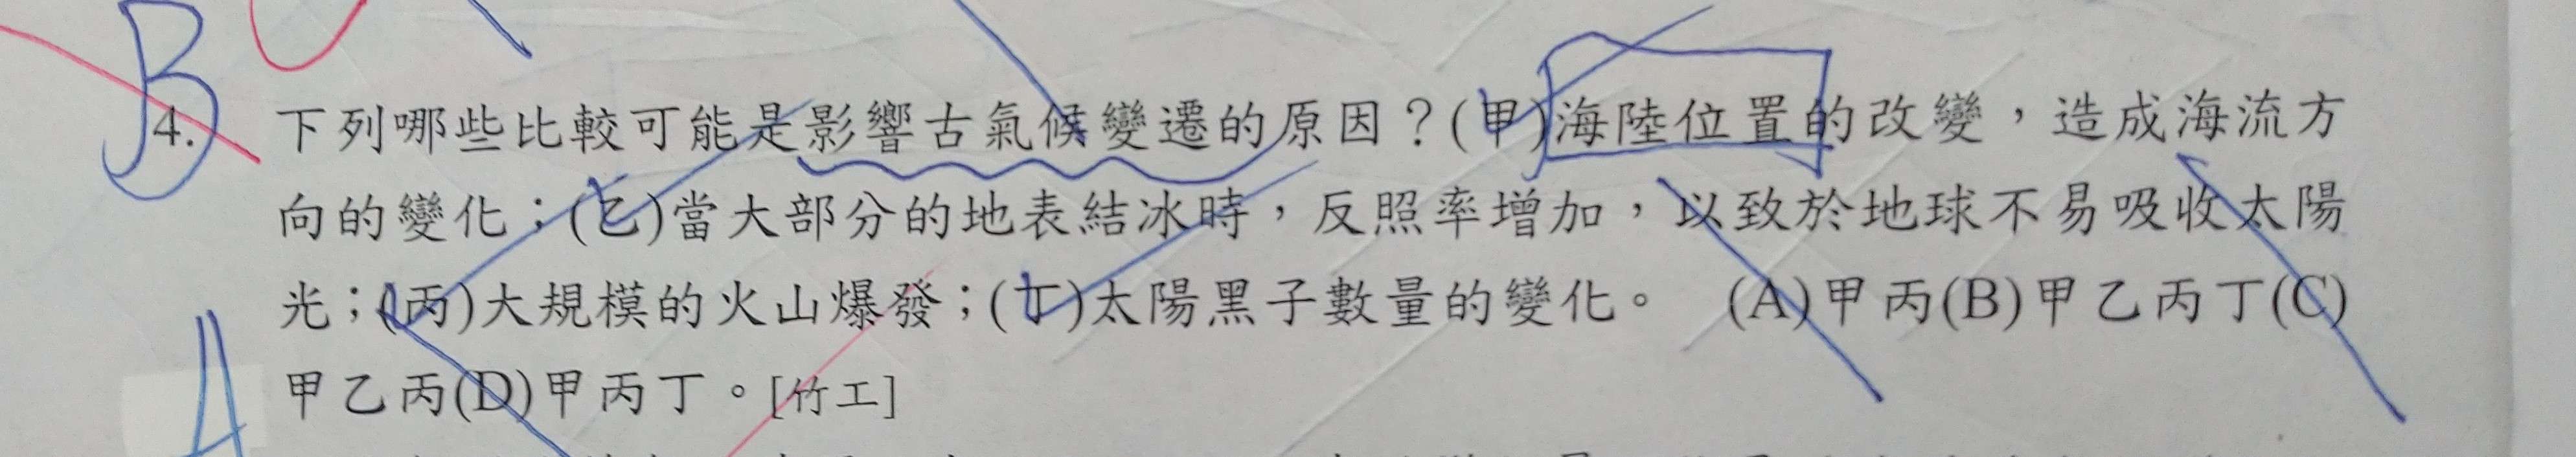 B
4. 下列哪些比較可能是影響古氣候變遷的原因？(甲)海陸位置的改變，造成海流方
向的變化；(乙)當大部分的地表結冰時，反照率增加，以致於地球不易吸收太陽
光；(丙)大規模的火山爆發；(丁)太陽黑子數量的變化。 (A)甲丙(B)甲乙丙丁(C)
甲乙丙(D)甲丙丁。[竹工]
A